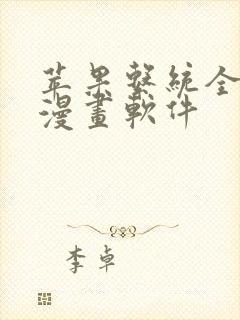 苹果繫統全
漫畫軟件
李卓